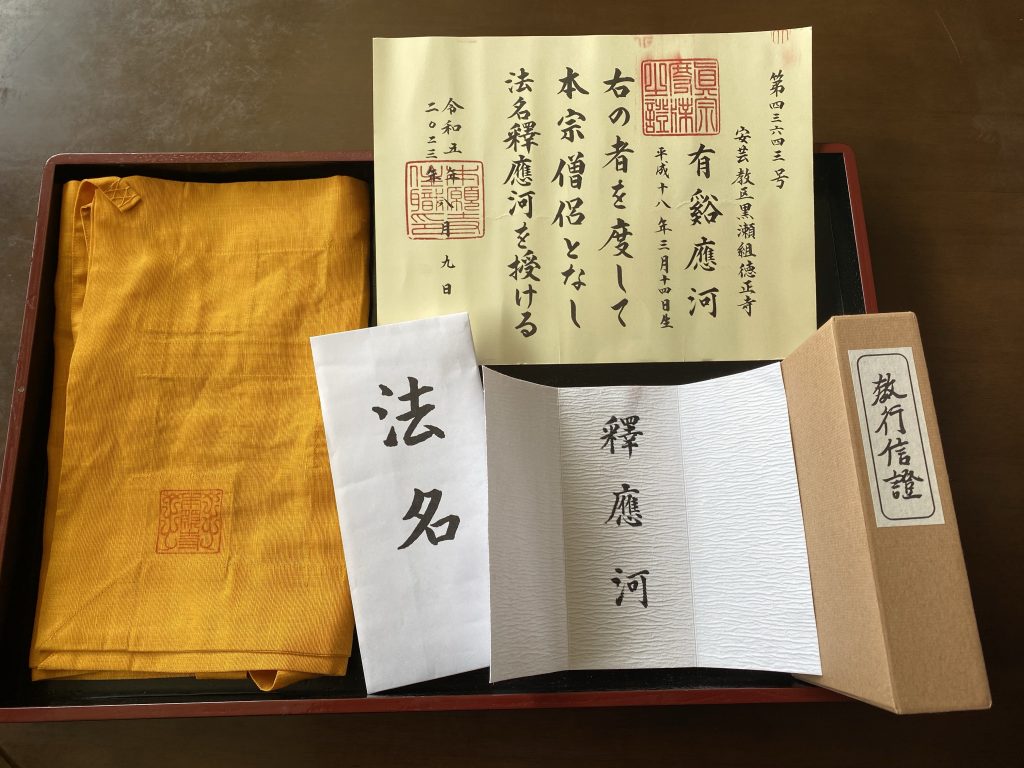 第四三六四三号
安芸教区黒瀬組徳正寺
有谿應河
平成十八年三月十四日生
右の者を度して
本宗僧侶となし
法名釋應河を授ける
令和五年八月九日
二〇二三年
法名
釋應河
教行信證